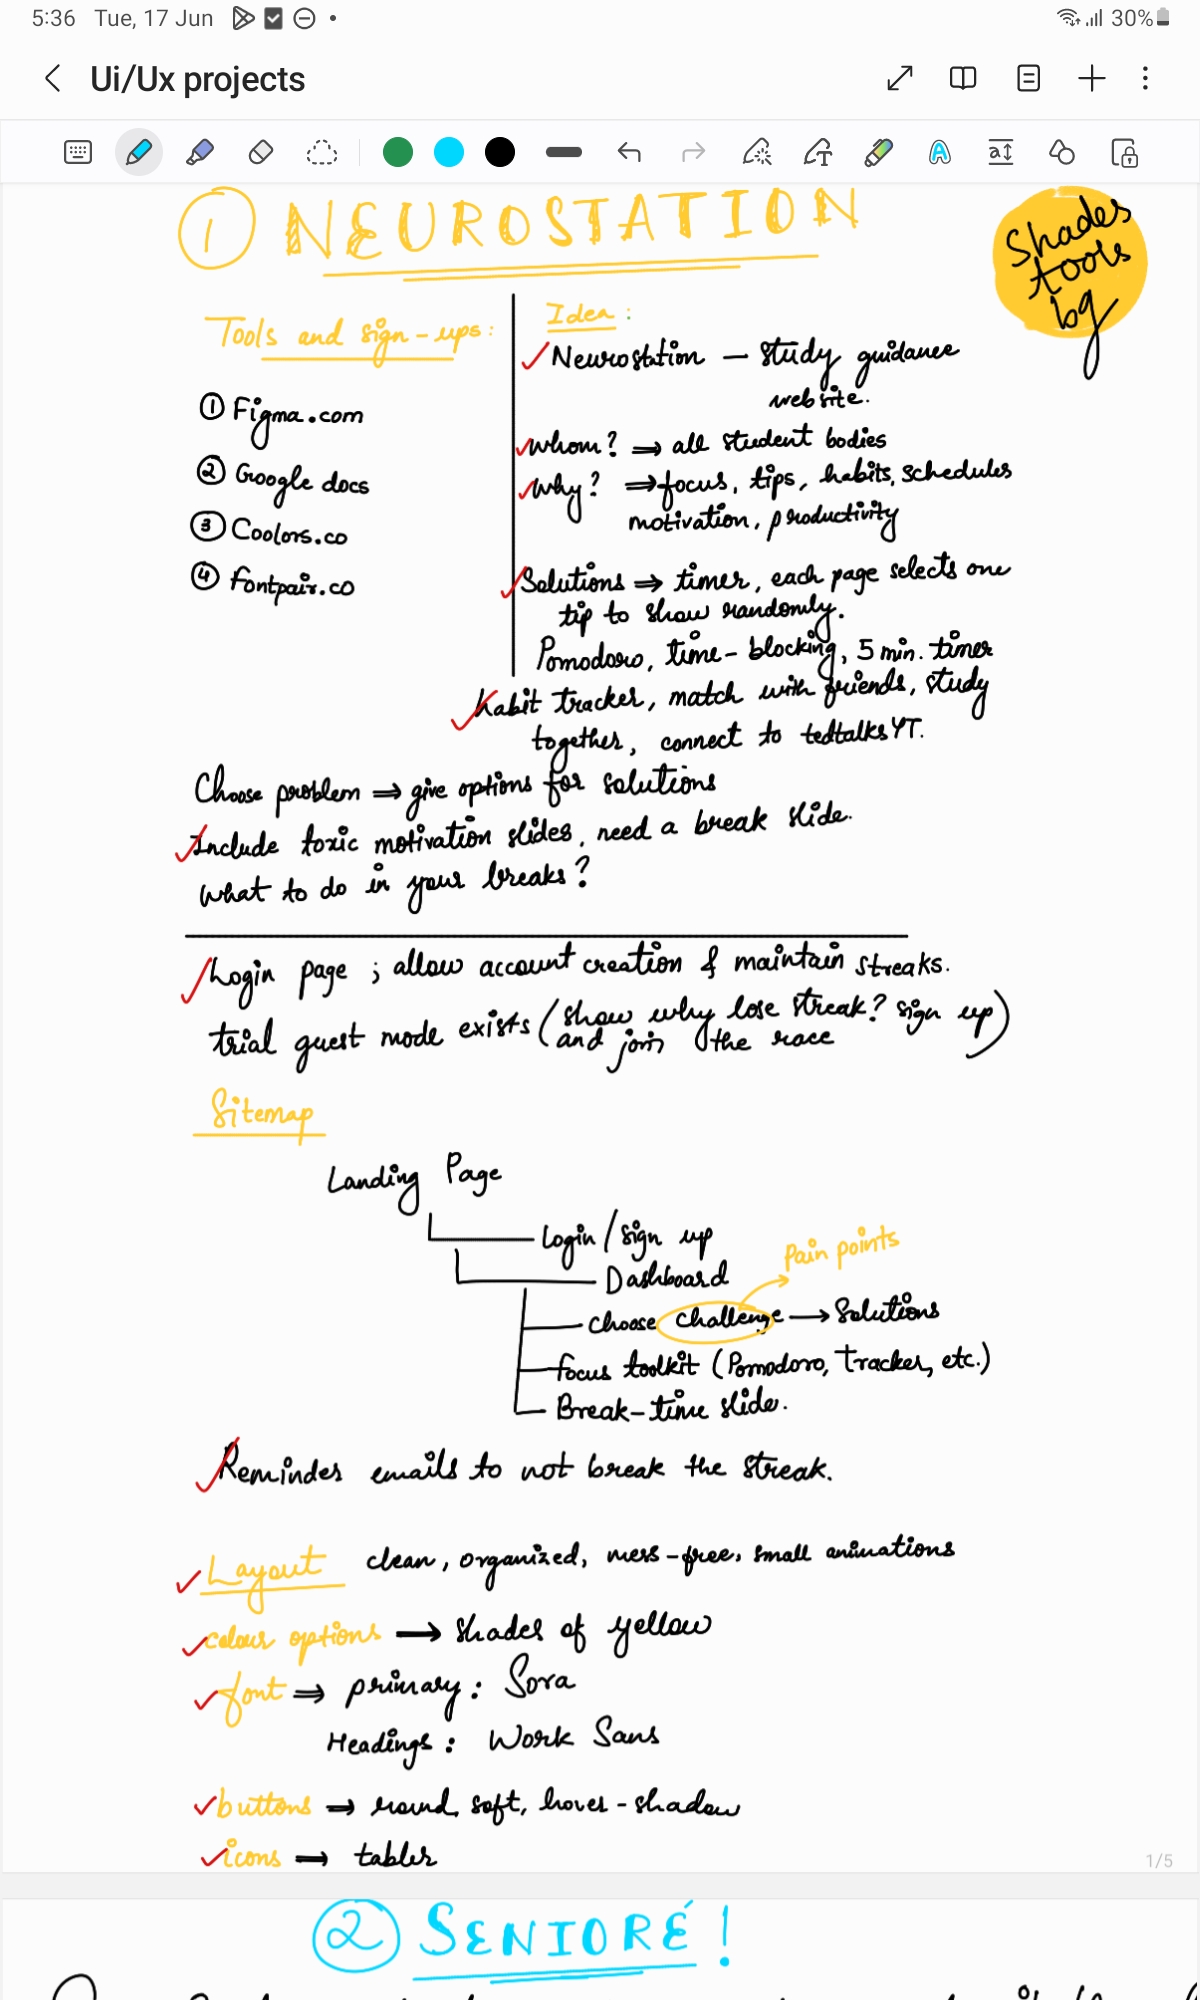 5:36 Tue, 17 Jun
30%
Ui/Ux projects
① NEUROSTATION
Shades
tools
bg
Tools and sign-ups:
① Figma.com
② Google docs
③ Coolors.co
④ Fontpair.co
Idea:
Neurostation — study guidance
website.
Whom? ⇒ all student bodies
Why? ⇒ focus, tips, habits, schedules
motivation, productivity
Solutions ⇒ timer, each page selects one
tip to show randomly.
Pomodoro, time-blocking, 5 min. timer
habit tracker, match with friends, study
together, connect to tedtalks YT.
Choose problem ⇒ give options for solutions
Include toxic motivation slides, need a break slide.
What to do in your breaks?
Login page ; allow account creation & maintain streaks.
trial guest mode exists (show why lose streak? sign up)
and join the race
Sitemap
Landing Page
Login / sign up
Pain points
Dashboard
Choose challenge → Solutions
focus toolkit (Pomodoro, Tracker, etc.)
Break-time slide.
Reminder emails to not break the streak.
Layout clean, organized, mess-free, small animations
colour options → shades of yellow
font ⇒ primary: Sora
Headings: Work Sans
buttons ⇒ round, soft, hover-shadow
icons ⇒ tabler
1/5
② SENIORÉ!